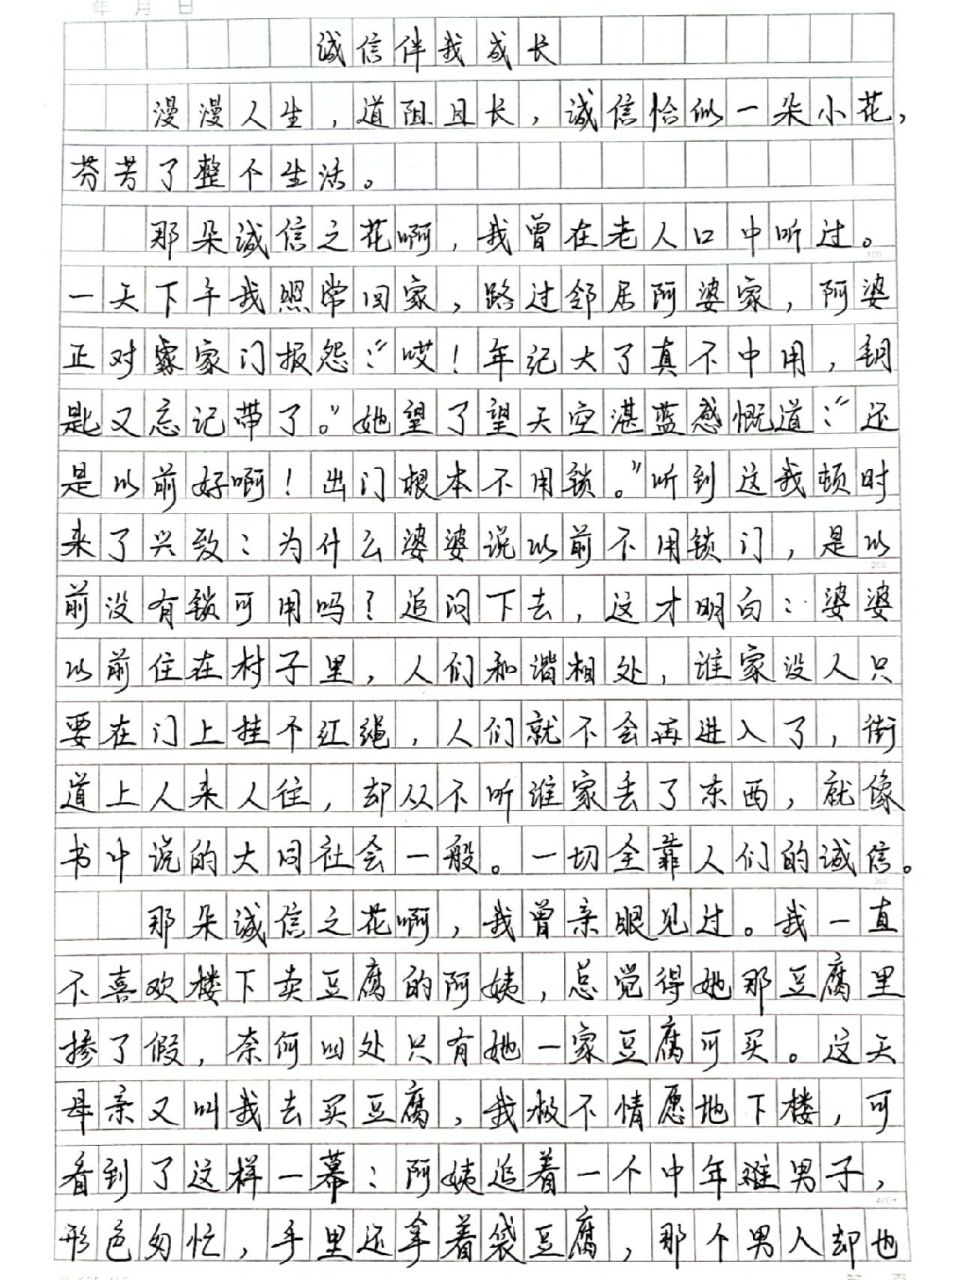 年 月 日
诚信伴我成长
漫漫人生，道阻且长，诚信恰似一朵小花，
芬芳了整个生活。
那朵诚信之花啊，我曾在老人口中听过。
一天下午我照常回家，路过邻居阿婆家，阿婆
正对家门报怨：“哎！年纪大了真不中用，钥
匙又忘记带了。”她望了望天空湛蓝感慨道：“还
是以前好啊！出门根本不用锁。”听到这我顿时
来了兴致：为什么婆婆说以前不用锁门，是以
前没有锁可用吗？追问下去，这才明白：婆婆
以前住在村子里，人们和谐相处，谁家没人只
要在门上挂个红绳，人们就不会再进入了，街
道上人来人往，却从不听谁家丢了东西，就像
书中说的大同社会一般。一切全靠人们的诚信。
那朵诚信之花啊，我曾亲眼见过。我一直
不喜欢楼下卖豆腐的阿姨，总觉得她那豆腐里
掺了假，奈何四处只有她一家豆腐可买。这天
母亲又叫我去买豆腐，我极不情愿地下楼，可
看到了这样一幕：阿姨追着一个中年男子，
形色匆忙，手里还拿着袋豆腐，那个男人却也